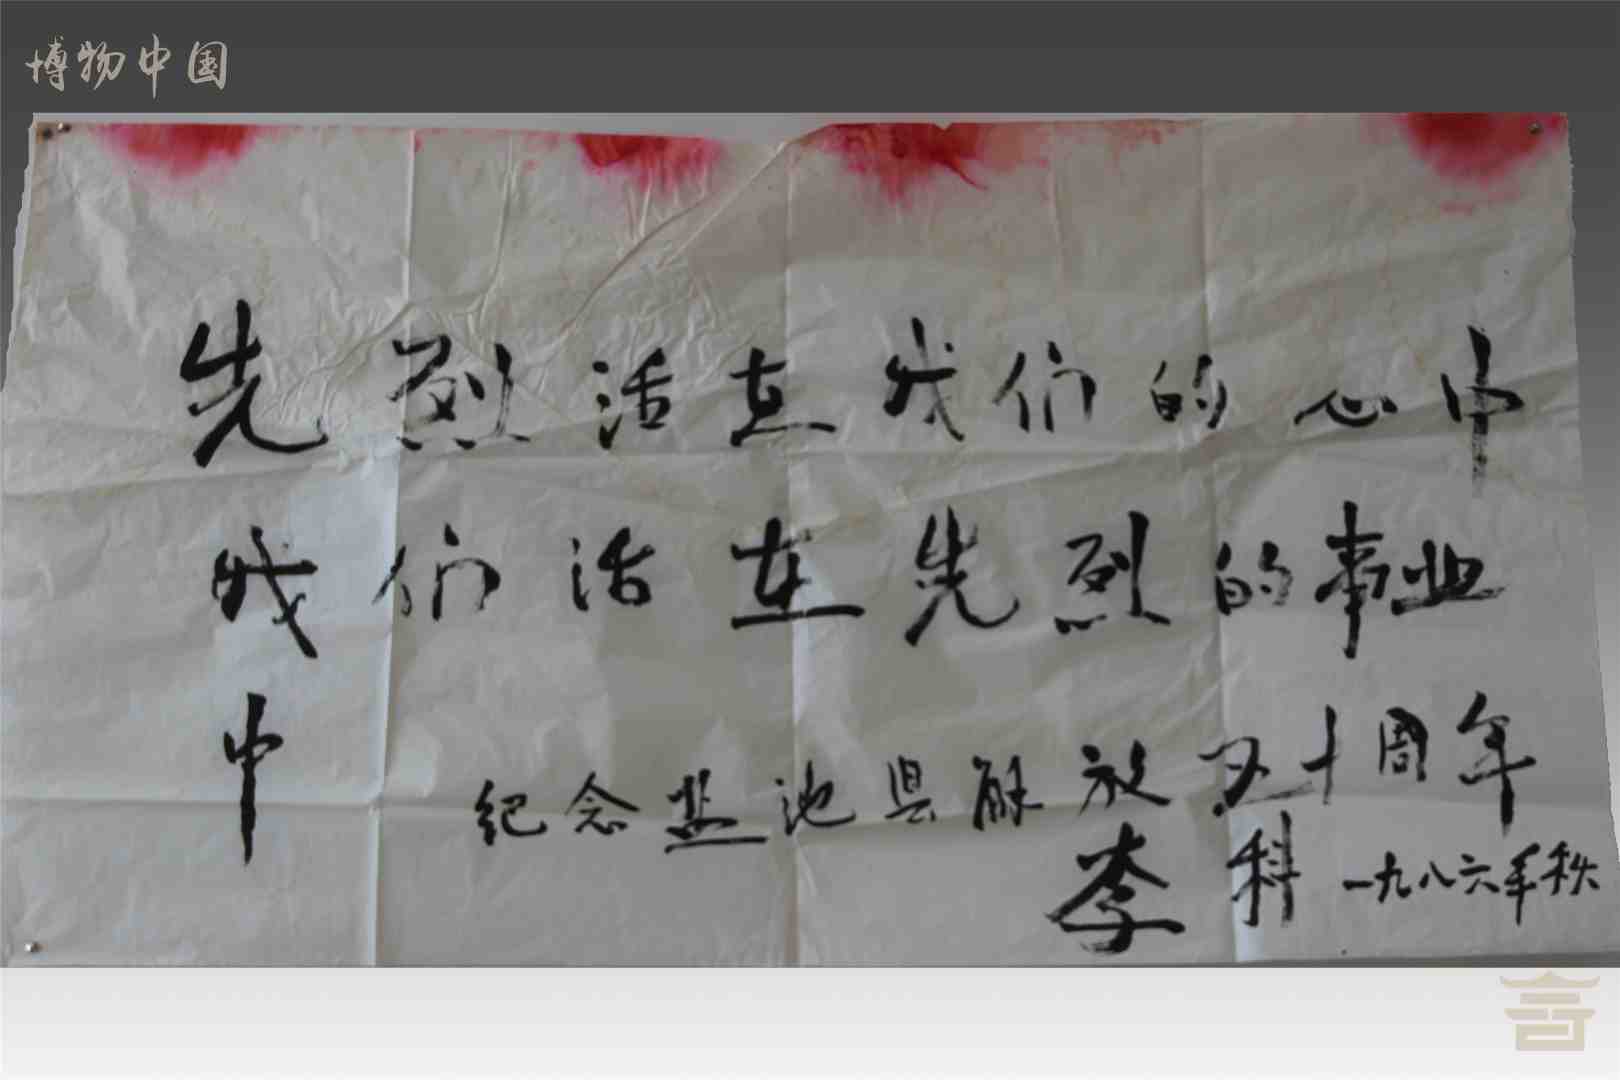 博物中国
先烈活在我们的心中
我们活在先烈的事业
中
纪念盐池县解放五十周年
李科 一九八六年秋